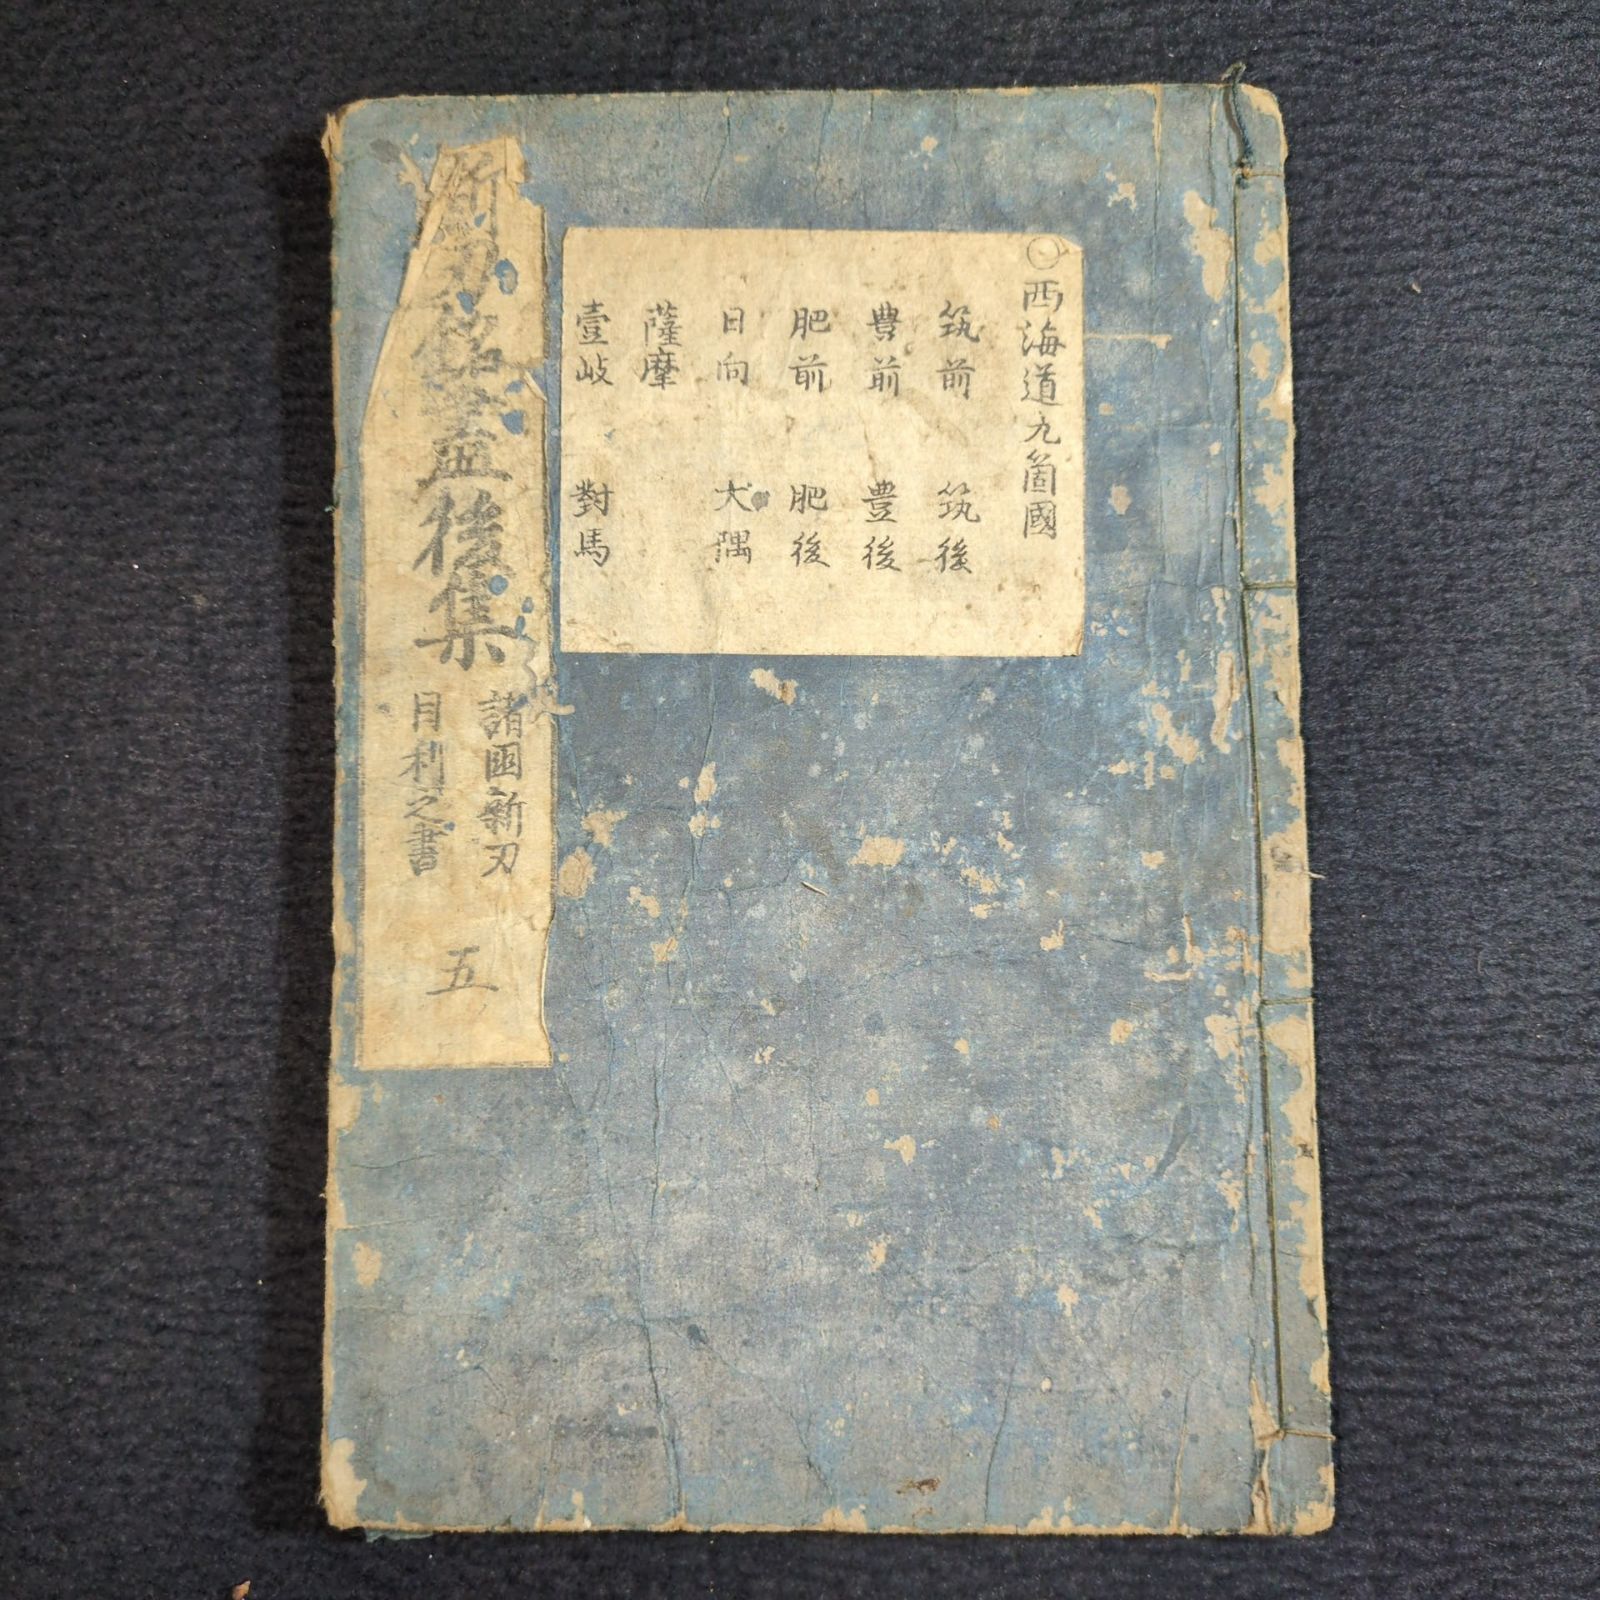 西海道九箇國
筑前 筑後
豊前 豊後
肥前 肥後
日向 大隅
薩摩
壹岐 對馬
新刀銘盡後集
諸國新刃
目利之書
五